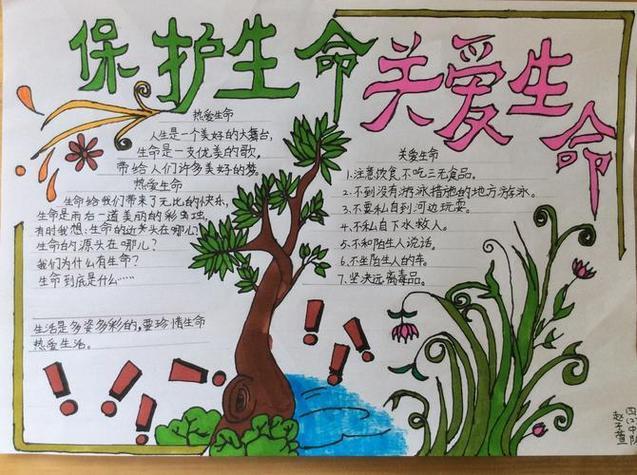 保护生命
关爱生命
热爱生命
人生是一个美好的大舞台，
生命是一支优美的歌。
带给人们许多美好的梦。
热爱生命
生命给我们带来了无比的快乐，
生命是雨后一道美丽的彩
有时我想：生命的
头在哪儿？
生命的源头在哪儿？
我们为什么有生命？
生命到底是什么……
生活是多姿多彩的，要珍惜生命
热爱生活。
关爱生命
1.注意饮食，不吃三无食品。
2.不到没有游泳措施的地方游泳。
3.不要私自到河边玩耍。
4.不私自下水救人。
5.不和陌生人说话。
6.不坐陌生人的车。
7.坚决远离毒品。
中队